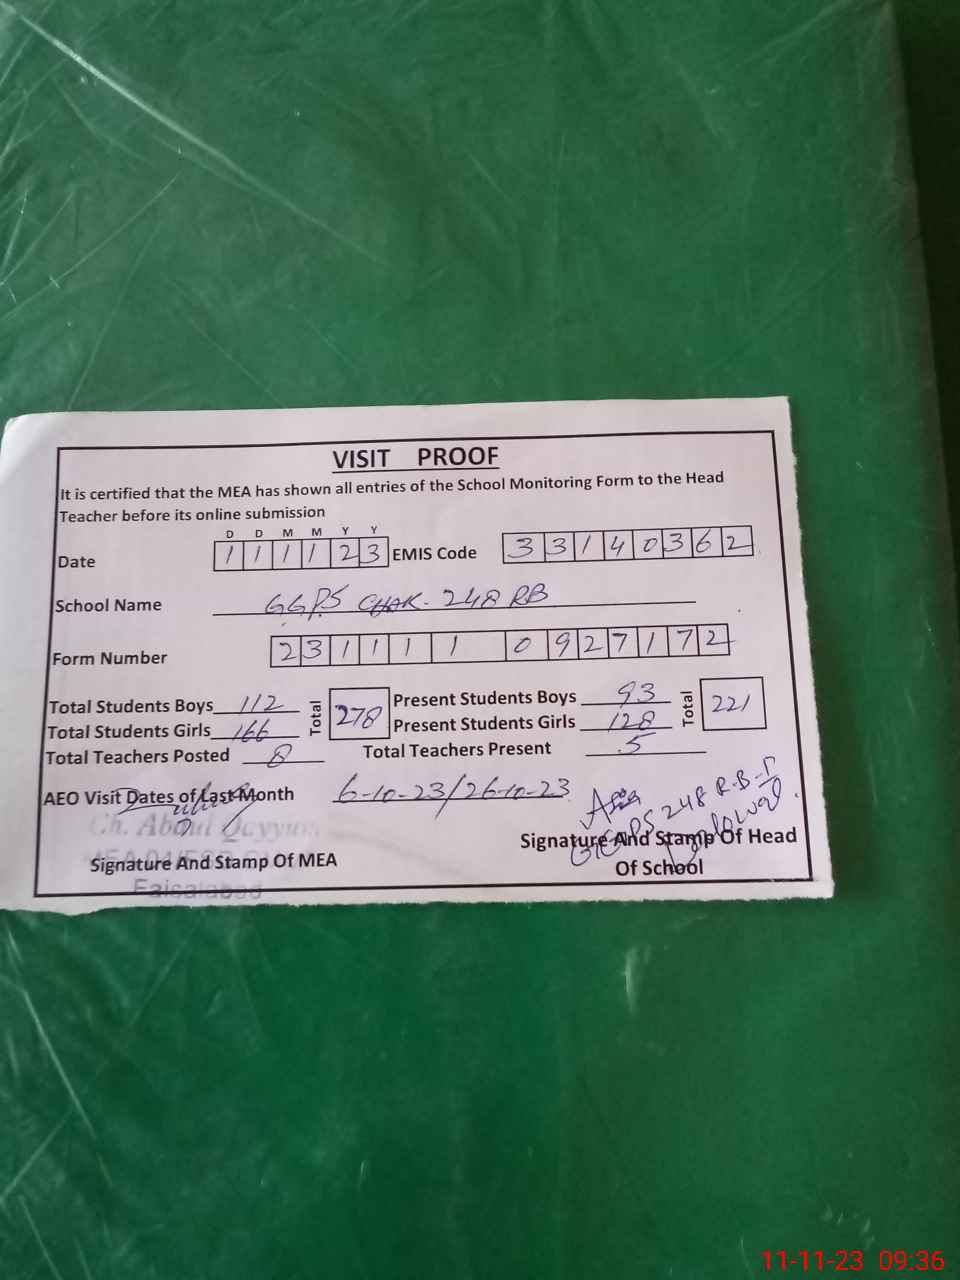 VISIT PROOF
It is certified that the MEA has shown all entries of the School Monitoring Form to the Head
Teacher before its online submission
D D M M Y Y
Date 1 1 1 1 2 3 EMIS Code 3 3 1 4 0 3 6 2
School Name GGPS CHAK. 248 RB
Form Number 2 3 1 1 1 1 0 9 2 7 1 7 2
Total Students Boys 112 Total 278 Present Students Boys 93 Total 221
Total Students Girls 166 Present Students Girls 128
Total Teachers Posted 8 Total Teachers Present 5
AEO Visit Dates of Last Month 6-10-23/26-10-23
Ch. Abdul Qayyum
Asia
248 R.B-I
Signature And Stamp Of MEA
Faisalabad
Signature And Stamp Of Head
Of School
11-11-23 09:36